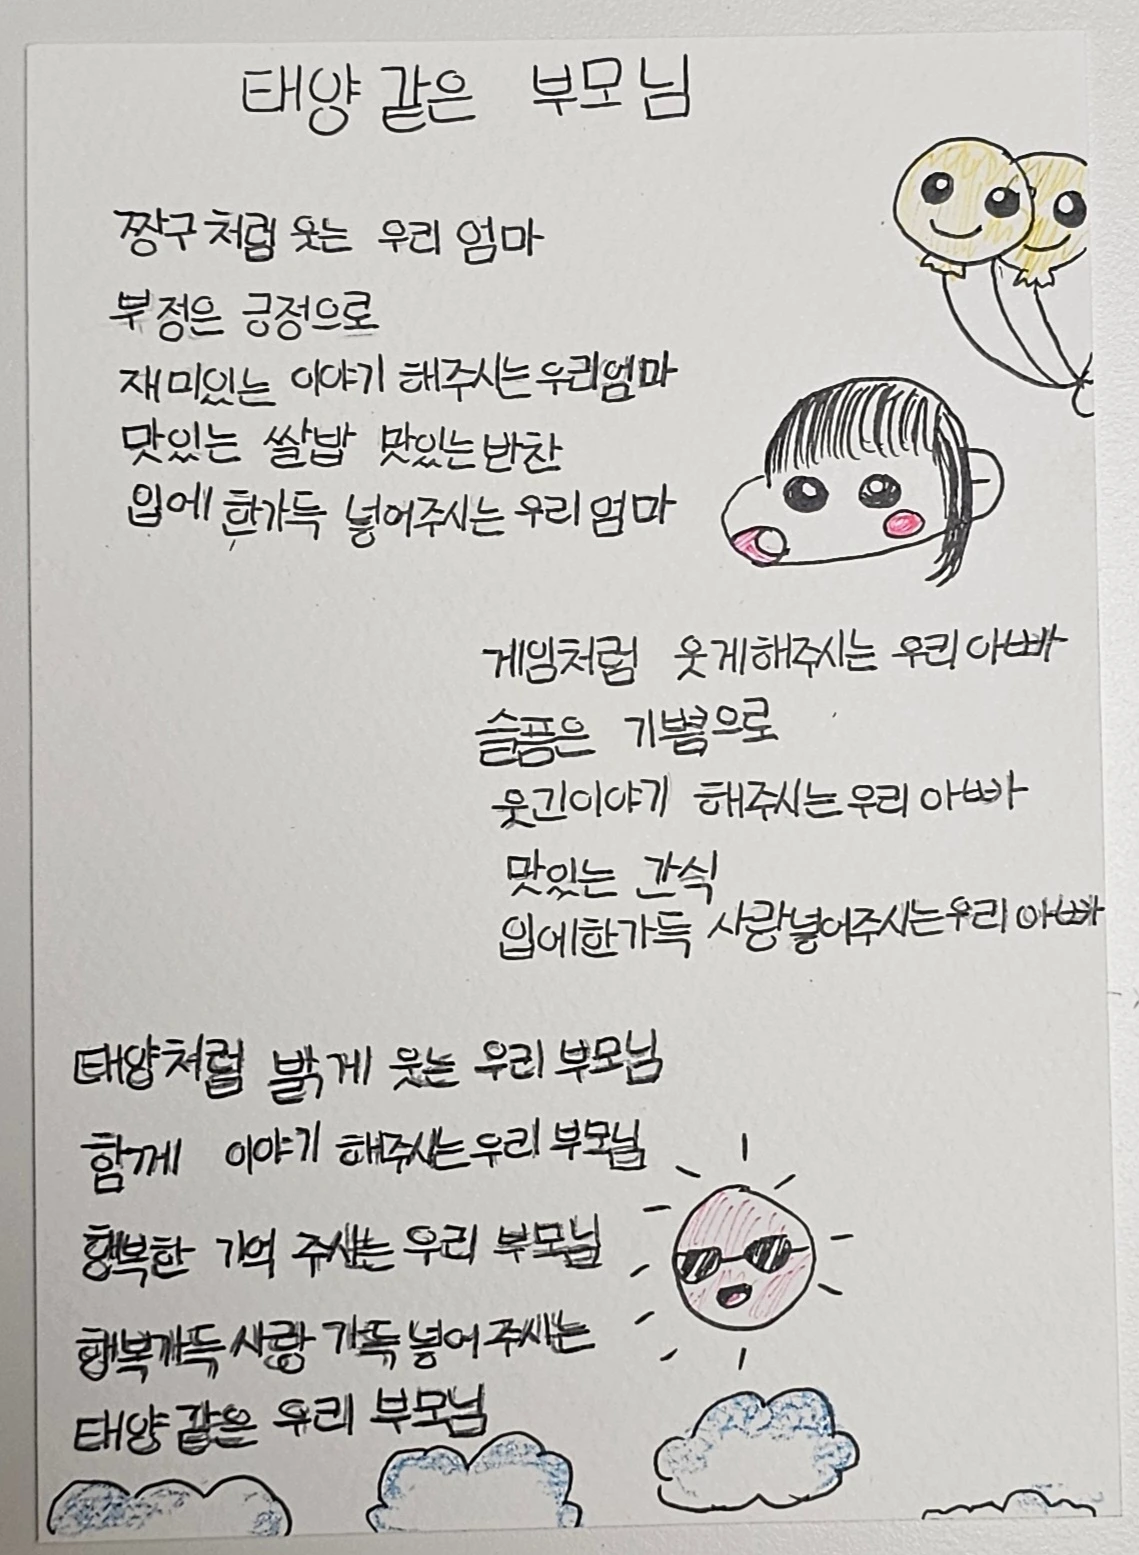 태양 같은 부모님
짱구처럼 웃는 우리 엄마
부정은 긍정으로
재미있는 이야기 해주시는 우리엄마
맛있는 쌀밥 맛있는 반찬
입에 한가득 넣어주시는 우리 엄마
게임처럼 웃게해주시는 우리 아빠
슬픔은 기쁨으로
웃긴이야기 해주시는 우리 아빠
맛있는 간식
입에한가득 사랑넣어주시는우리 아빠
태양처럼 밝게 웃는 우리 부모님
함께 이야기 해주시는 우리 부모님
행복한 기억 주시는 우리 부모님
행복가득 사랑 가득 넣어 주시는
태양 같은 우리 부모님